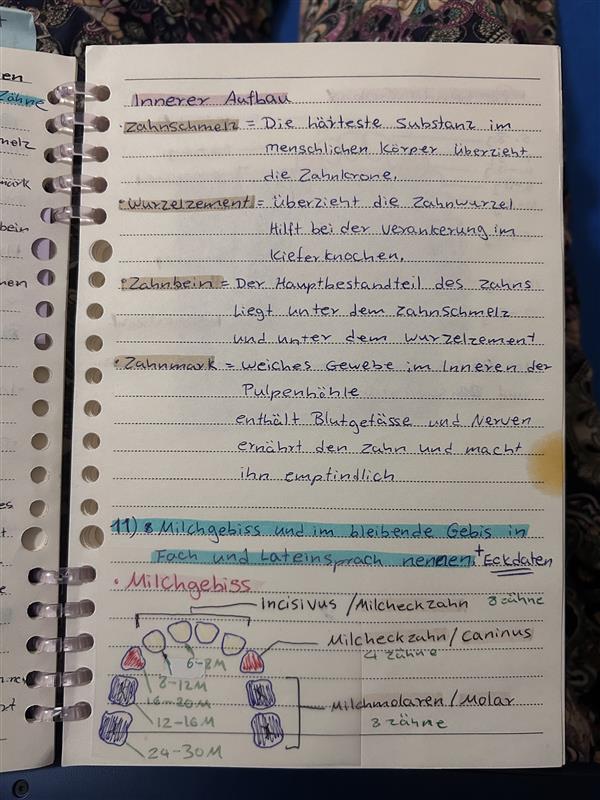 Innerer Aufbau
• Zahnschmelz = Die härteste Substanz im
menschlichen Körper überzieht
die Zahnkrone.
• Wurzelzement = überzieht die Zahnwurzel
Hilft bei der Verankerung im
Kieferknochen.
• Zahnbein = Der Hauptbestandteil des Zahns
liegt unter dem Zahnschmelz
und unter dem Wurzelzement
• Zahnmark = weiches Gewebe im Inneren der
Pulpenhöhle
enthält Blutgefässe und Nerven
ernährt den Zahn und macht
ihn empfindlich
11) 8 Milchgebiss und im bleibende Gebis in
Fach und Lateinsprach nennen + Eckdaten
• Milchgebiss
Incisivus / Milcheckzahn 8 zähne
Milcheckzahn / Caninus
4 zähne
6-8M
8-12M
16-20M
12-16M
24-30M
Milchmolaren / Molar
8 zähne
en
Zähne
melz
mark
bein
nen